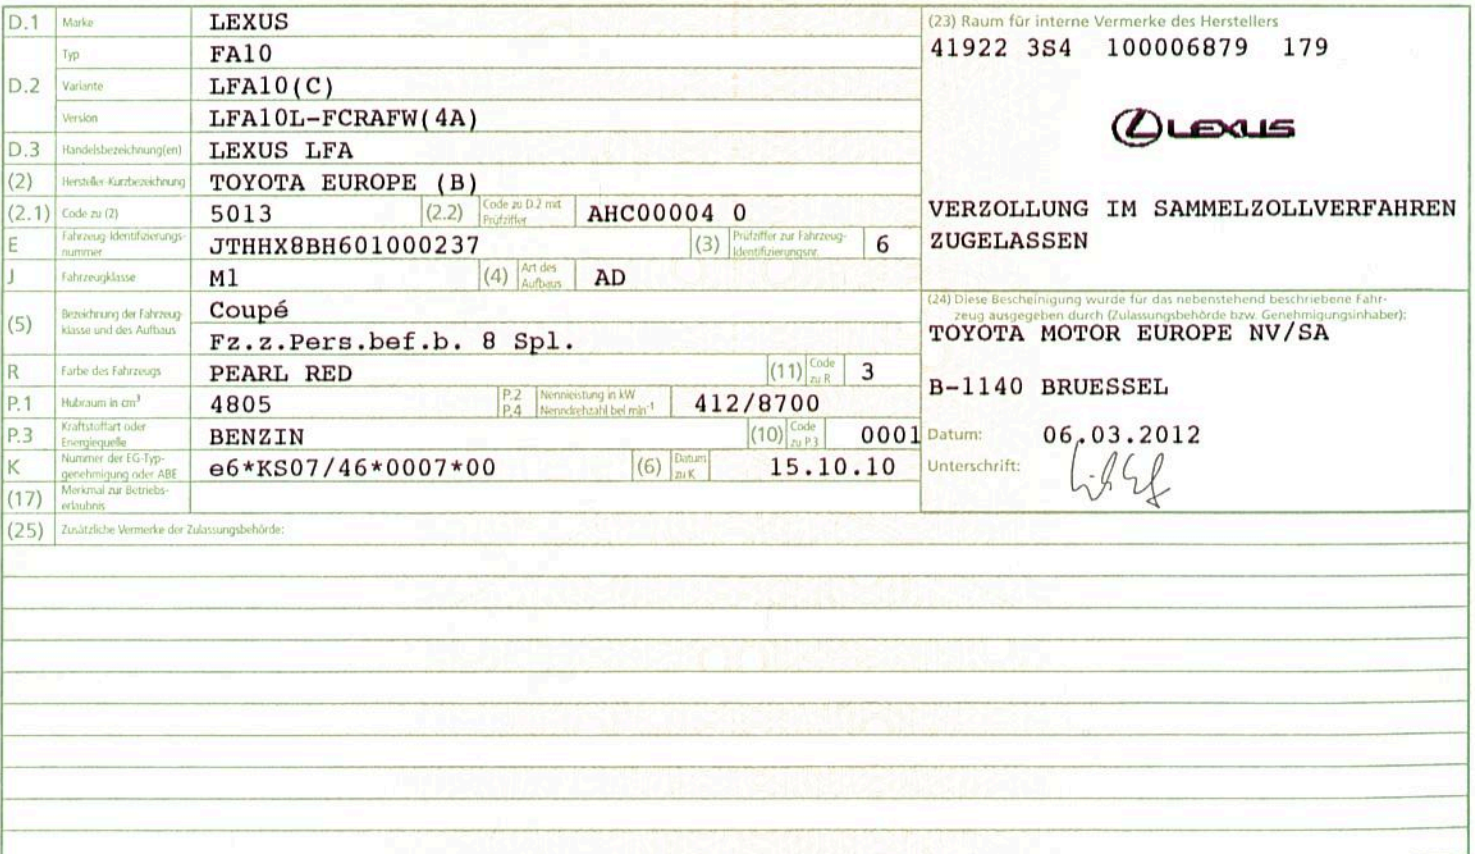 D.1 Marke LEXUS
Typ FA10
D.2 Variante LFA10(C)
Version LFA10L-FCRAFW(4A)
D.3 Handelsbezeichnung(en) LEXUS LFA
(2) Hersteller-Kurzbezeichnung TOYOTA EUROPE (B)
(2.1) Code zu (2) 5013 (2.2) Code zu D.2 mit Prüfziffer AHC00004 0
E Fahrzeug-Identifizierungs-nummer JTHHX8BH601000237 (3) Prüfziffer zur Fahrzeug-Identifizierungsnr. 6
J Fahrzeugklasse M1 (4) Art des Aufbaus AD
(5) Bezeichnung der Fahrzeug-klasse und des Aufbaus Coupé
Fz.z.Pers.bef.b. 8 Spl.
R Farbe des Fahrzeugs PEARL RED (11) Code zu R 3
P.1 Hubraum in cm³ 4805 P.2 P.4 Nennleistung in kW Nenndrehzahl bei min⁻¹ 412/8700
P.3 Kraftstoffart oder Energiequelle BENZIN (10) Code zu P.3 0001
K Nummer der EG-Typ-genehmigung oder ABE e6*KS07/46*0007*00 (6) Datum zu K 15.10.10
(17) Merkmal zur Betriebs-erlaubnis
(23) Raum für interne Vermerke des Herstellers
41922 3S4 100006879 179
LEXUS
VERZOLLUNG IM SAMMELZOLLVERFAHREN
ZUGELASSEN
(24) Diese Bescheinigung wurde für das nebenstehend beschriebene Fahr-
zeug ausgegeben durch (Zulassungsbehörde bzw. Genehmigungsinhaber):
TOYOTA MOTOR EUROPE NV/SA
B-1140 BRUESSEL
Datum: 06.03.2012
Unterschrift:
(25) Zusätzliche Vermerke der Zulassungsbehörde: